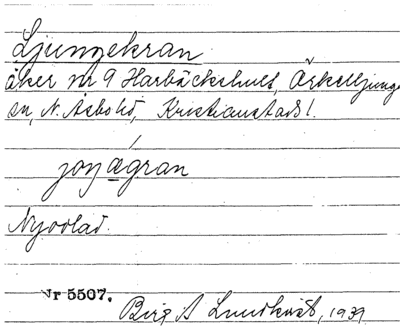 Ljungekran
åker nr 9 Harbäckshult, Örkelljunga
sn, N. Åsbo hd, Kristianstads l.
joŋægran
Nyodlad.
Nr 5507.
Birg A Lundkvist, 1939